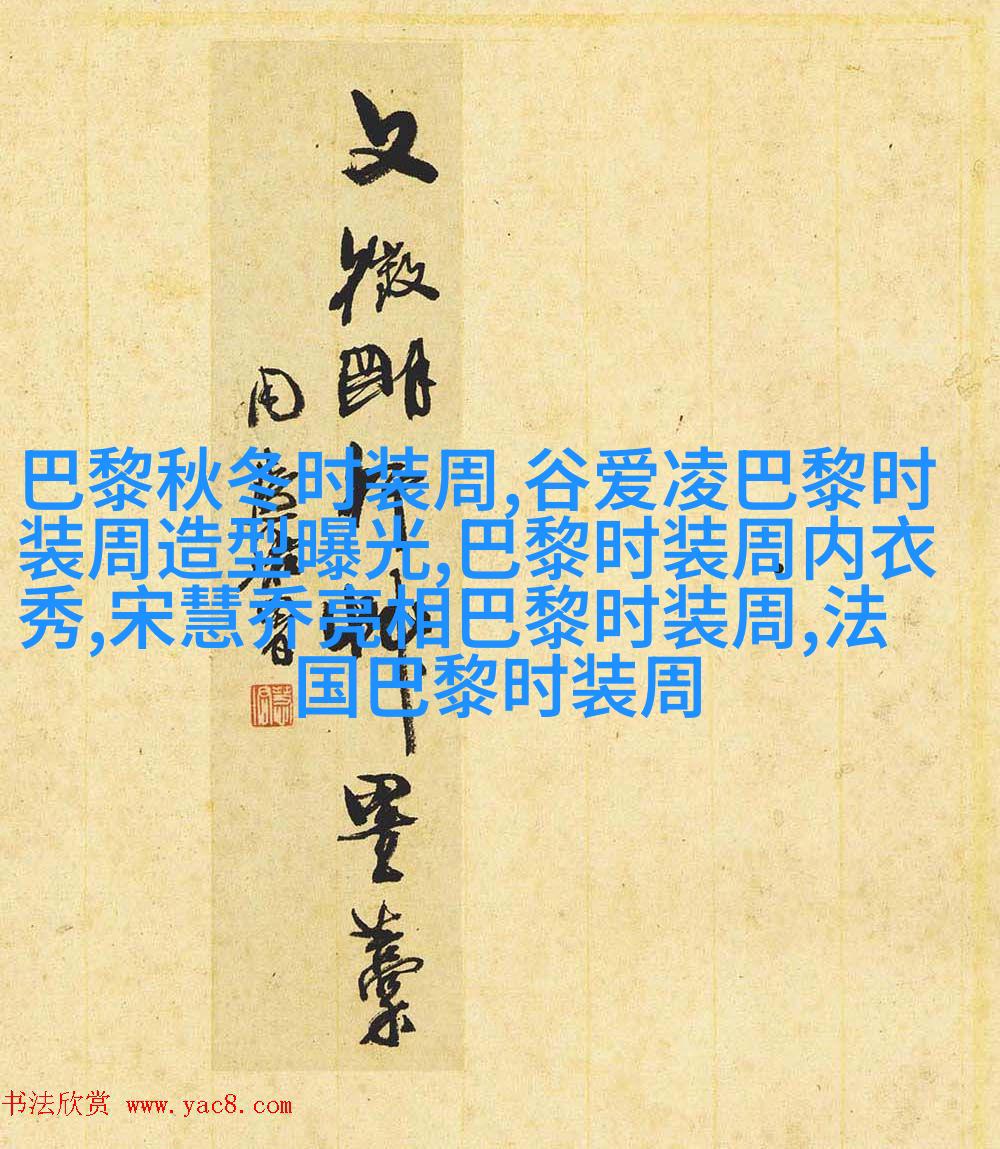 文徵明行书墨藁
巴黎秋冬时装周,谷爱凌巴黎时
装周造型曝光,巴黎时装周内衣
秀,宋慧乔亮相巴黎时装周,法
国巴黎时装周
书法欣赏 www.yac8.com